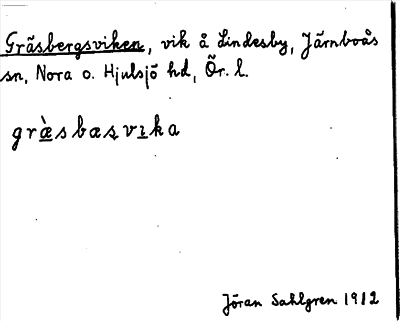 Gräsbergsviken, vik å Lindesby, Järnboås
sn, Nora o. Hjulsjö hd, Ör. l.
græ̀sbæsvıka
Jöran Sahlgren 1912